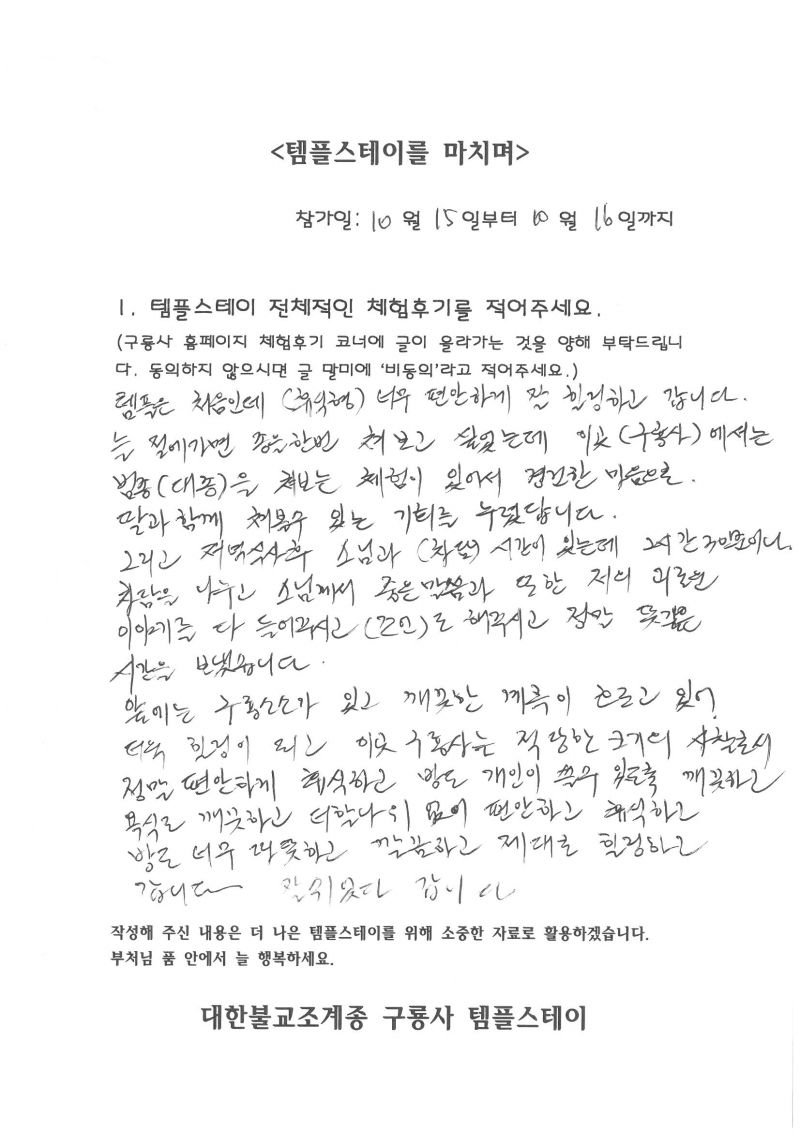 <템플스테이를 마치며>
참가일: 10 월 15일부터 10 월 16일까지
1. 템플스테이 전체적인 체험후기를 적어주세요.
(구룡사 홈페이지 체험후기 코너에 글이 올라가는 것을 양해 부탁드립니
다. 동의하지 않으시면 글 말미에 '비동의'라고 적어주세요.)
템플은 처음인데 (휴식형) 너무 편안하게 잘 힐링하고 갑니다.
늘 절에가면 종을한번 쳐보고 싶었는데 이곳(구룡사)에서는
범종(대종)을 쳐보는 체험이 있어서 경건한 마음으로.
딸과함께 쳐볼수 있는 기회를 누렸답니다.
그리고 저녁식사후 스님과 (차담) 시간이 있는데 1시간 30분이나.
차담을 나누고 스님께서 좋은말씀과 또한 저의 괴로운
이야기를 다 들어주시고 (조언)도 해주시고 정말 뜻깊은
시간을 보냈습니다.
앞에는 구룡소가 있고 깨끗한 계곡이 흐르고 있어
더욱 힐링이 되고 이곳 구룡사는 적당한 크기의 사찰로서
정말 편안하게 휴식하고 방도 개인이 쓸수 있도록 깨끗하고
욕실도 깨끗하고 더할나위 없이 편안하고 휴식하고
방도 너무 따뜻하고 깔끔하고 제대로 힐링하고
갑니다 잘쉬었다 갑니다
작성해 주신 내용은 더 나은 템플스테이를 위해 소중한 자료로 활용하겠습니다.
부처님 품 안에서 늘 행복하세요.
대한불교조계종 구룡사 템플스테이